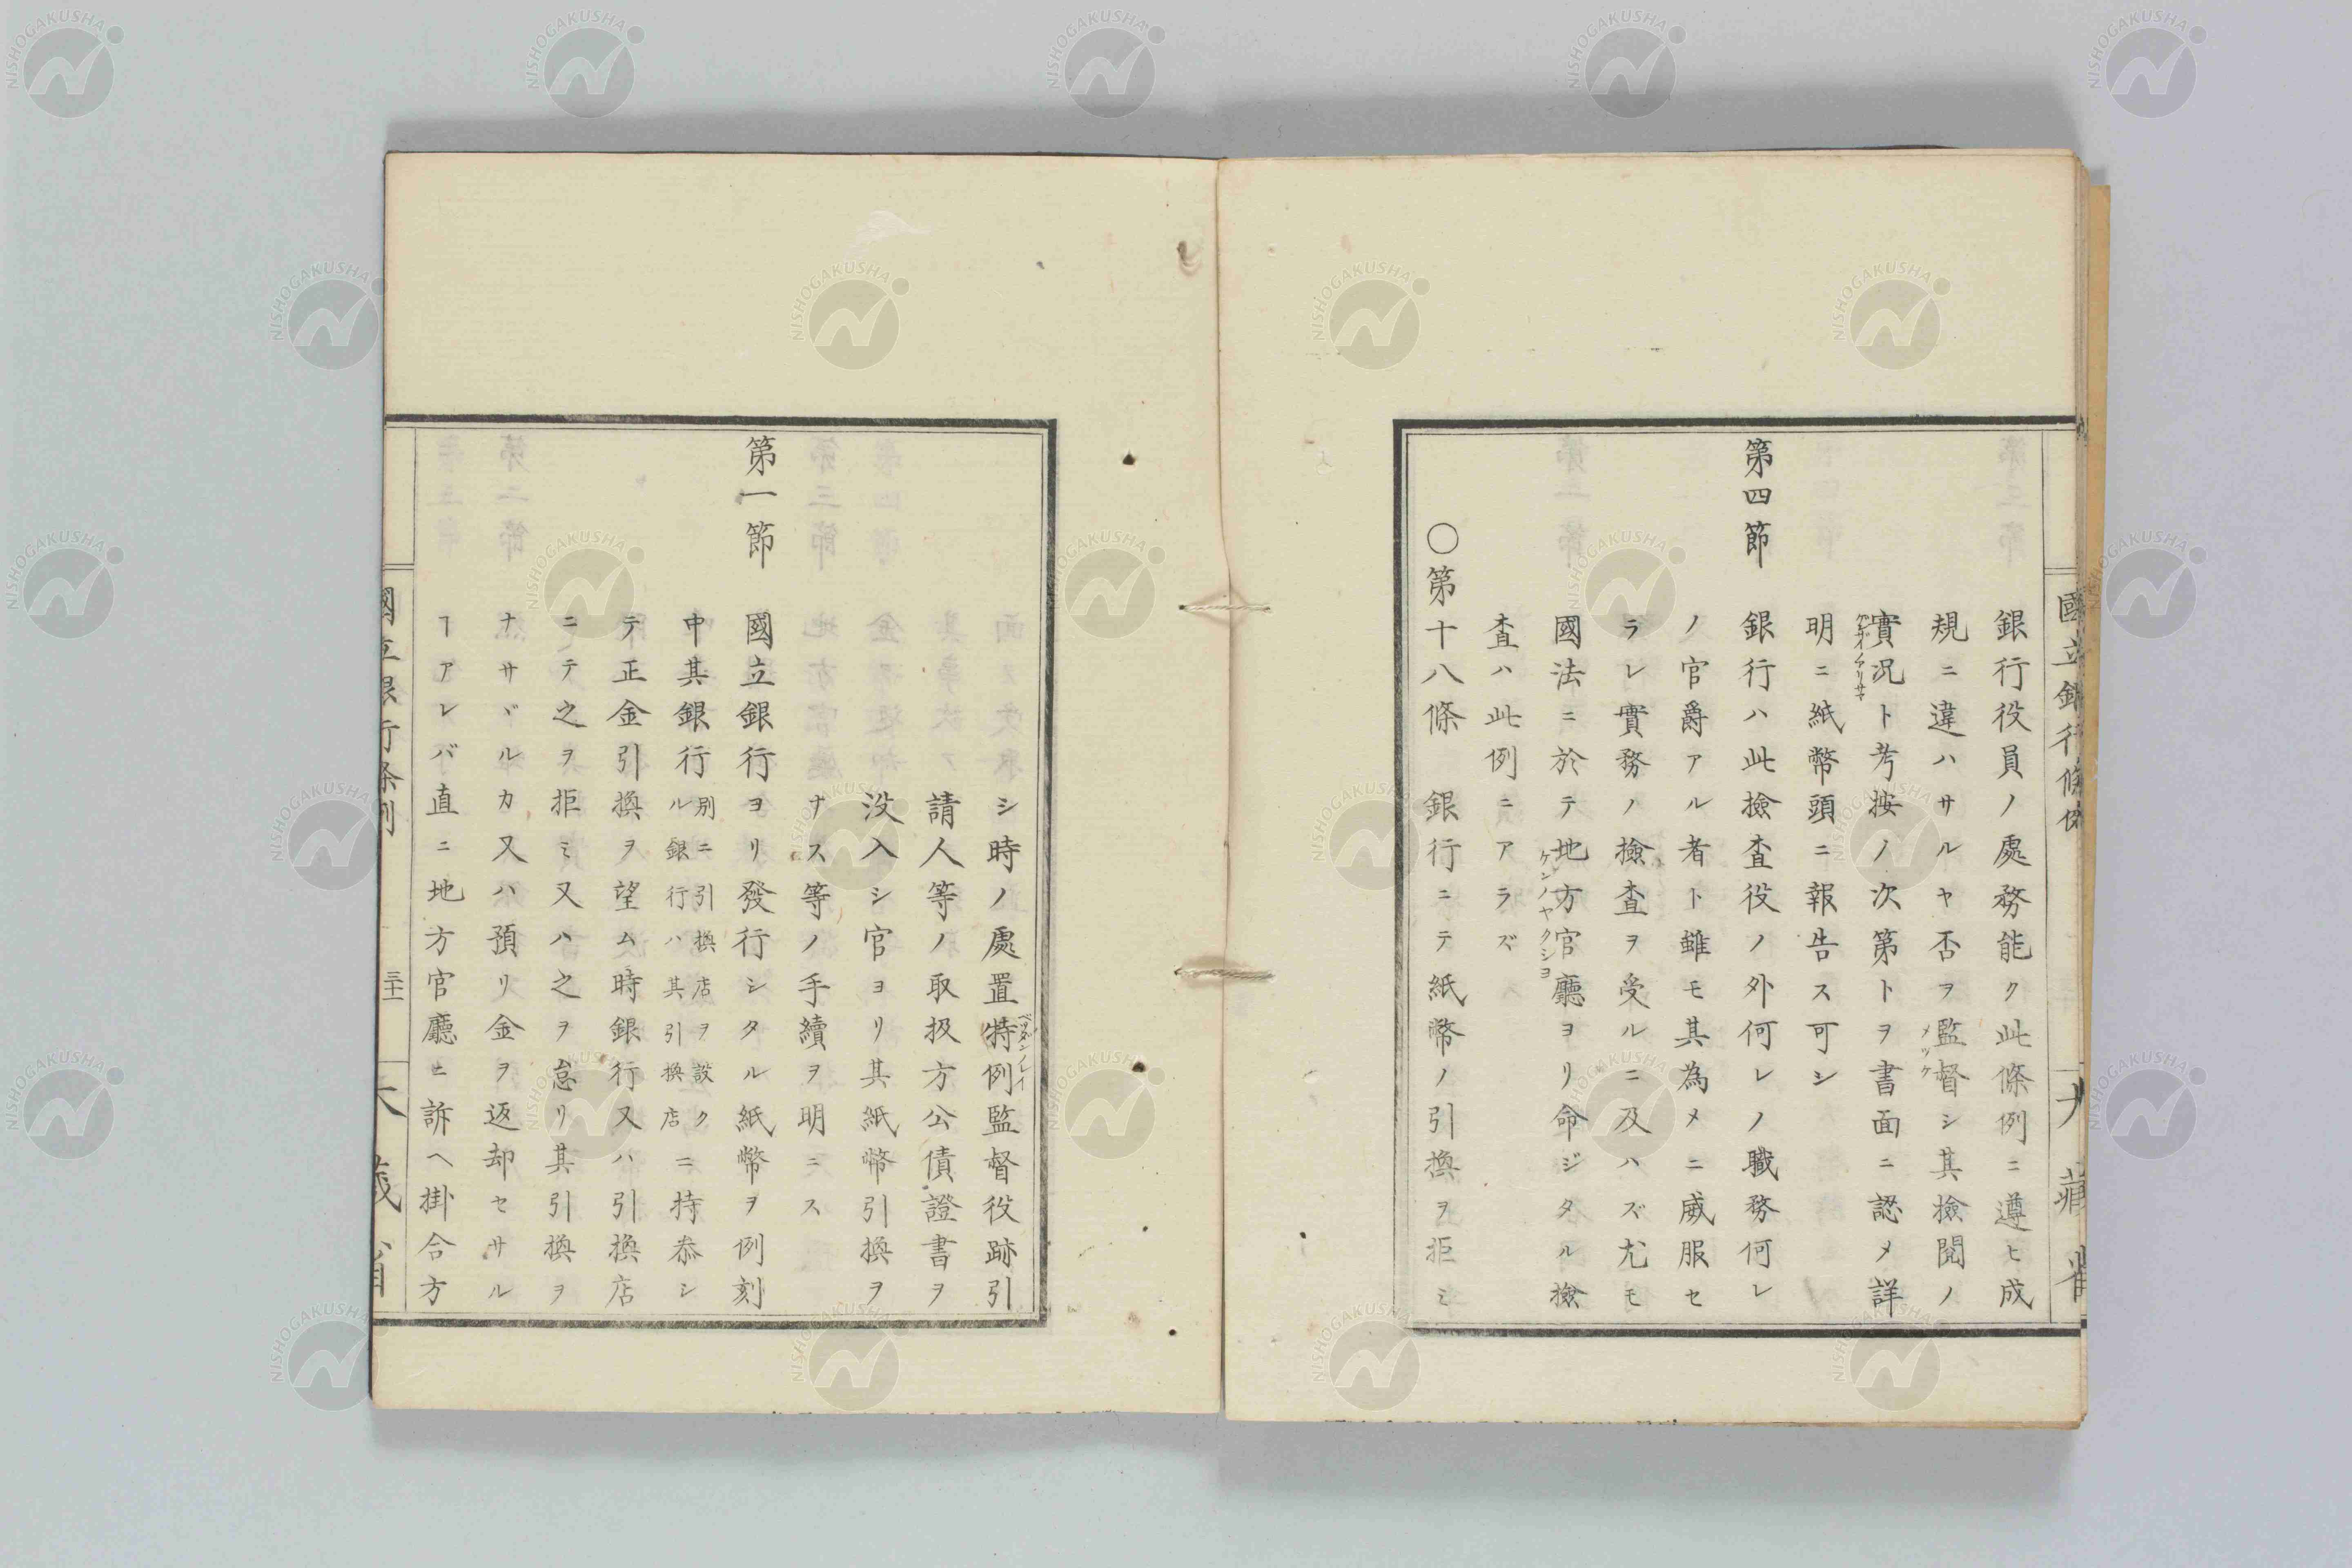 國立銀行條例
銀行役員ノ處務能ク此條例ニ遵ヒ成
規ニ違ハサルヤ否ヲ監督シ其撿閲ノ
メツケ
實況ト考按ノ次第トヲ書面ニ認メ詳
明ニ紙幣頭ニ報告ス可シ
第四節 銀行ハ此撿査役ノ外何レノ職務何レ
ノ官爵アル者ト雖モ其為メニ威服セ
ラレ實務ノ撿査ヲ受ルニ及ハズ尤モ
國法ニ於テ地方官廳ヨリ命ジタル撿
ケンノヤクシヨ
査ハ此例ニアラズ
〇第十八條 銀行ニテ紙幣ノ引換ヲ拒ミ
シ時ノ處置特例監督役跡引
ベツダンノレイ
請人等ノ取扱方公債證書ヲ
没入シ官ヨリ其紙幣引換ヲ
ナス等ノ手續ヲ明ニス
第一節 國立銀行ヨリ發行シタル紙幣ヲ例刻
中其銀行別ニ引換店ヲ設クル銀行ハ其引換店ニ持叅シ
テ正金引換ヲ望ム時銀行又ハ引換店
ニテ之ヲ拒ミ又ハ之ヲ怠リ其引換ヲ
ナサヾルカ又ハ預リ金ヲ返却セサル
ヿアレバ直ニ地方官廳ヒ訴ヘ掛合方
國立銀行條例 三十一 大藏省